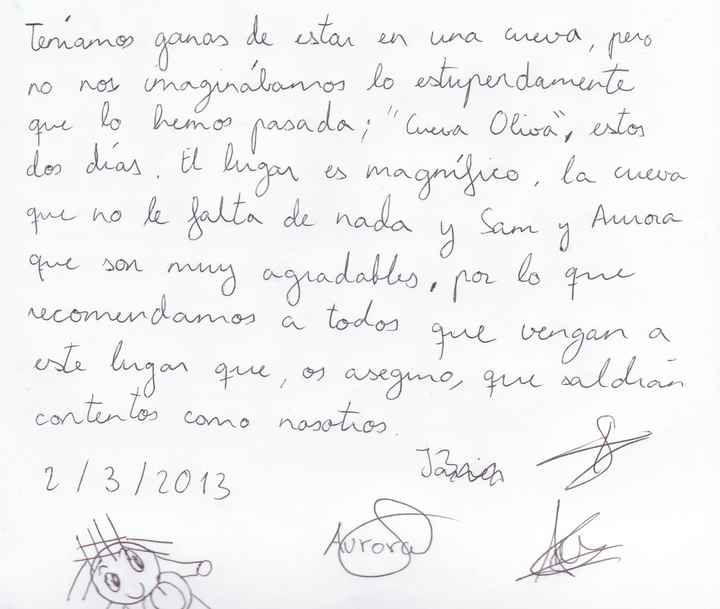 Teníamos ganas de estar en una cueva, pero
no nos imaginábamos lo estupendamente
que lo hemos pasado; "Cueva Oliva", estos
dos días. El lugar es magnífico, la cueva
que no le falta de nada y Sam y Aurora
que son muy agradables, por lo que
recomendamos a todos que vengan a
este lugar que, os aseguro, que saldrán
contentos como nosotros.
2/3/2013
Aurora